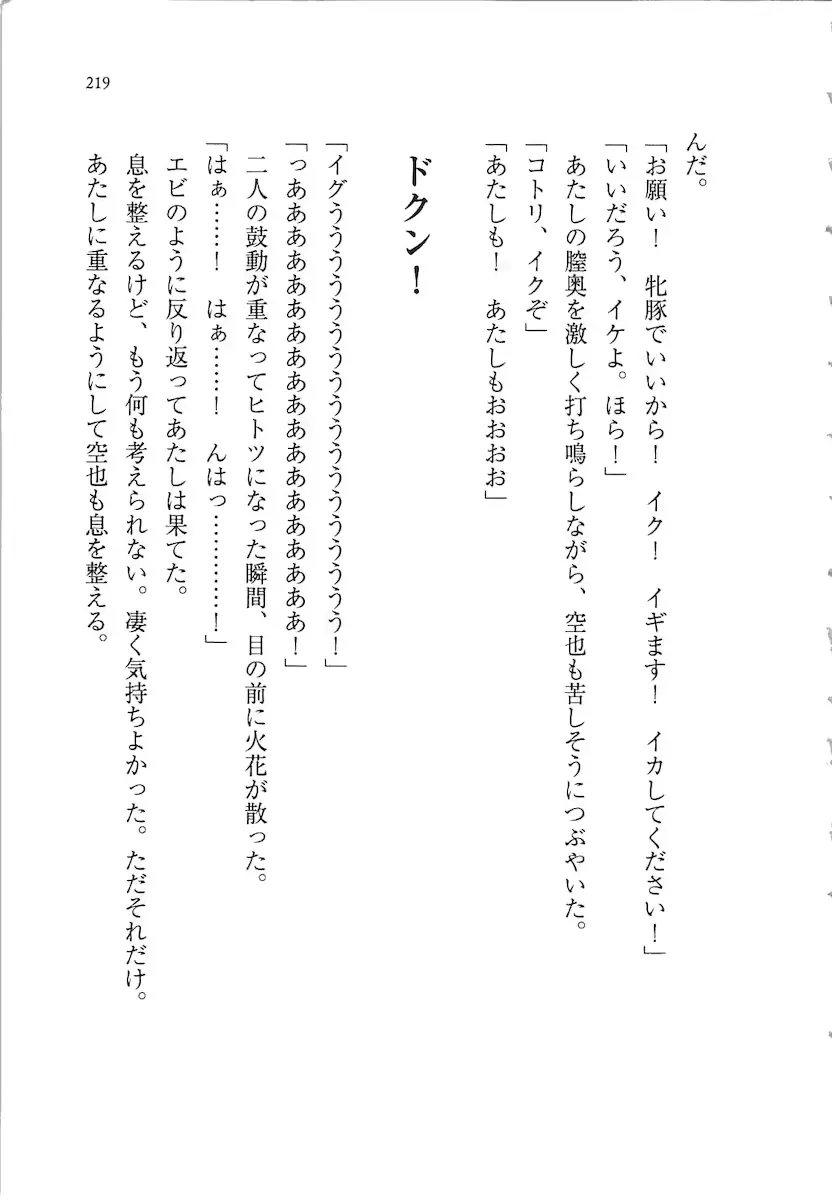 んだ。
「お願い！　牝豚でいいから！　イク！　イギます！　イカしてください！」
「いいだろう、イケよ。ほら！」
　あたしの膣奥を激しく打ち鳴らしながら、空也も苦しそうにつぶやいた。
「コトリ、イクぞ」
「あたしも！　あたしもおおおお」
ドクン！
「イグうううううううううううううううううう！」
「っああああああああああああああああああ！」
　二人の鼓動が重なってヒトツになった瞬間、目の前に火花が散った。
「はぁ……！　はぁ……！　んはっ…………！」
　エビのように反り返ってあたしは果てた。
　息を整えるけど、もう何も考えられない。凄く気持ちよかった。ただそれだけ。
　あたしに重なるようにして空也も息を整える。
219